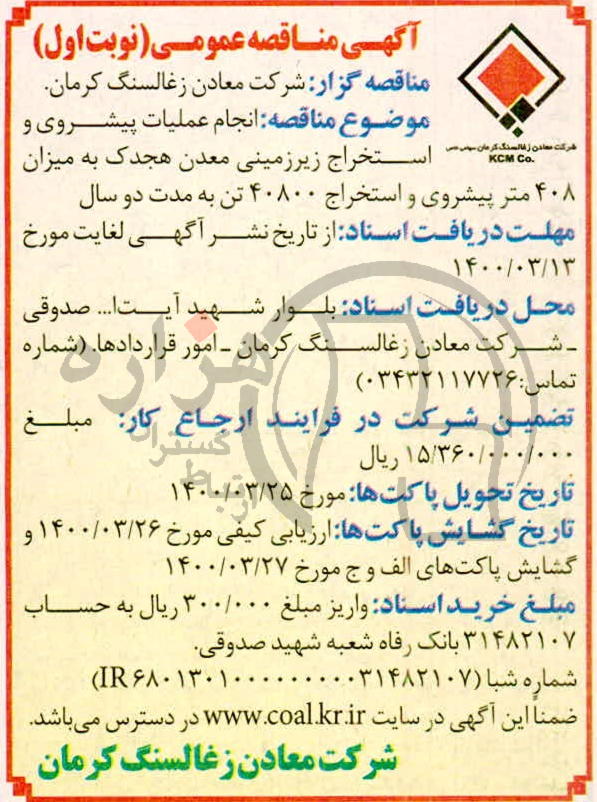 آگهی مناقصه عمومی (نوبت اول)
شرکت معادن زغالسنگ کرمان سهامی خاص
KCM Co.
مناقصه گزار: شرکت معادن زغالسنگ کرمان.
موضوع مناقصه: انجام عملیات پیشروی و
استخراج زیرزمینی معدن هجدک به میزان
۴۰۸ متر پیشروی و استخراج ۴۰۸۰۰ تن به مدت دو سال
مهلت دریافت اسناد: از تاریخ نشر آگهی لغایت مورخ
۱۴۰۰/۰۳/۱۳
محل دریافت اسناد: بلوار شهید آیت‌ا... صدوقی
ـ شرکت معادن زغالسنگ کرمان ـ امور قراردادها. (شماره
تماس: ۰۳۴۳۲۱۱۷۷۲۶)
تضمین شرکت در فرایند ارجاع کار: مبلغ
۱۵/۳۶۰/۰۰۰/۰۰۰ ریال
تاریخ تحویل پاکت‌ها: مورخ ۱۴۰۰/۰۳/۲۵
تاریخ گشایش پاکت‌ها: ارزیابی کیفی مورخ ۱۴۰۰/۰۳/۲۶ و
گشایش پاکت‌های الف و ج مورخ ۱۴۰۰/۰۳/۲۷
مبلغ خرید اسناد: واریز مبلغ ۳۰۰/۰۰۰ ریال به حساب
۳۱۴۸۲۱۰۷ بانک رفاه شعبه شهید صدوقی.
شماره شبا (IR ۶۸۰۱۳۰۱۰۰۰۰۰۰۰۰۰۰۳۱۴۸۲۱۰۷)
ضمناً این آگهی در سایت www.coal.kr.ir در دسترس می‌باشد.
شرکت معادن زغالسنگ کرمان
هزاره
گستران
ارتباط